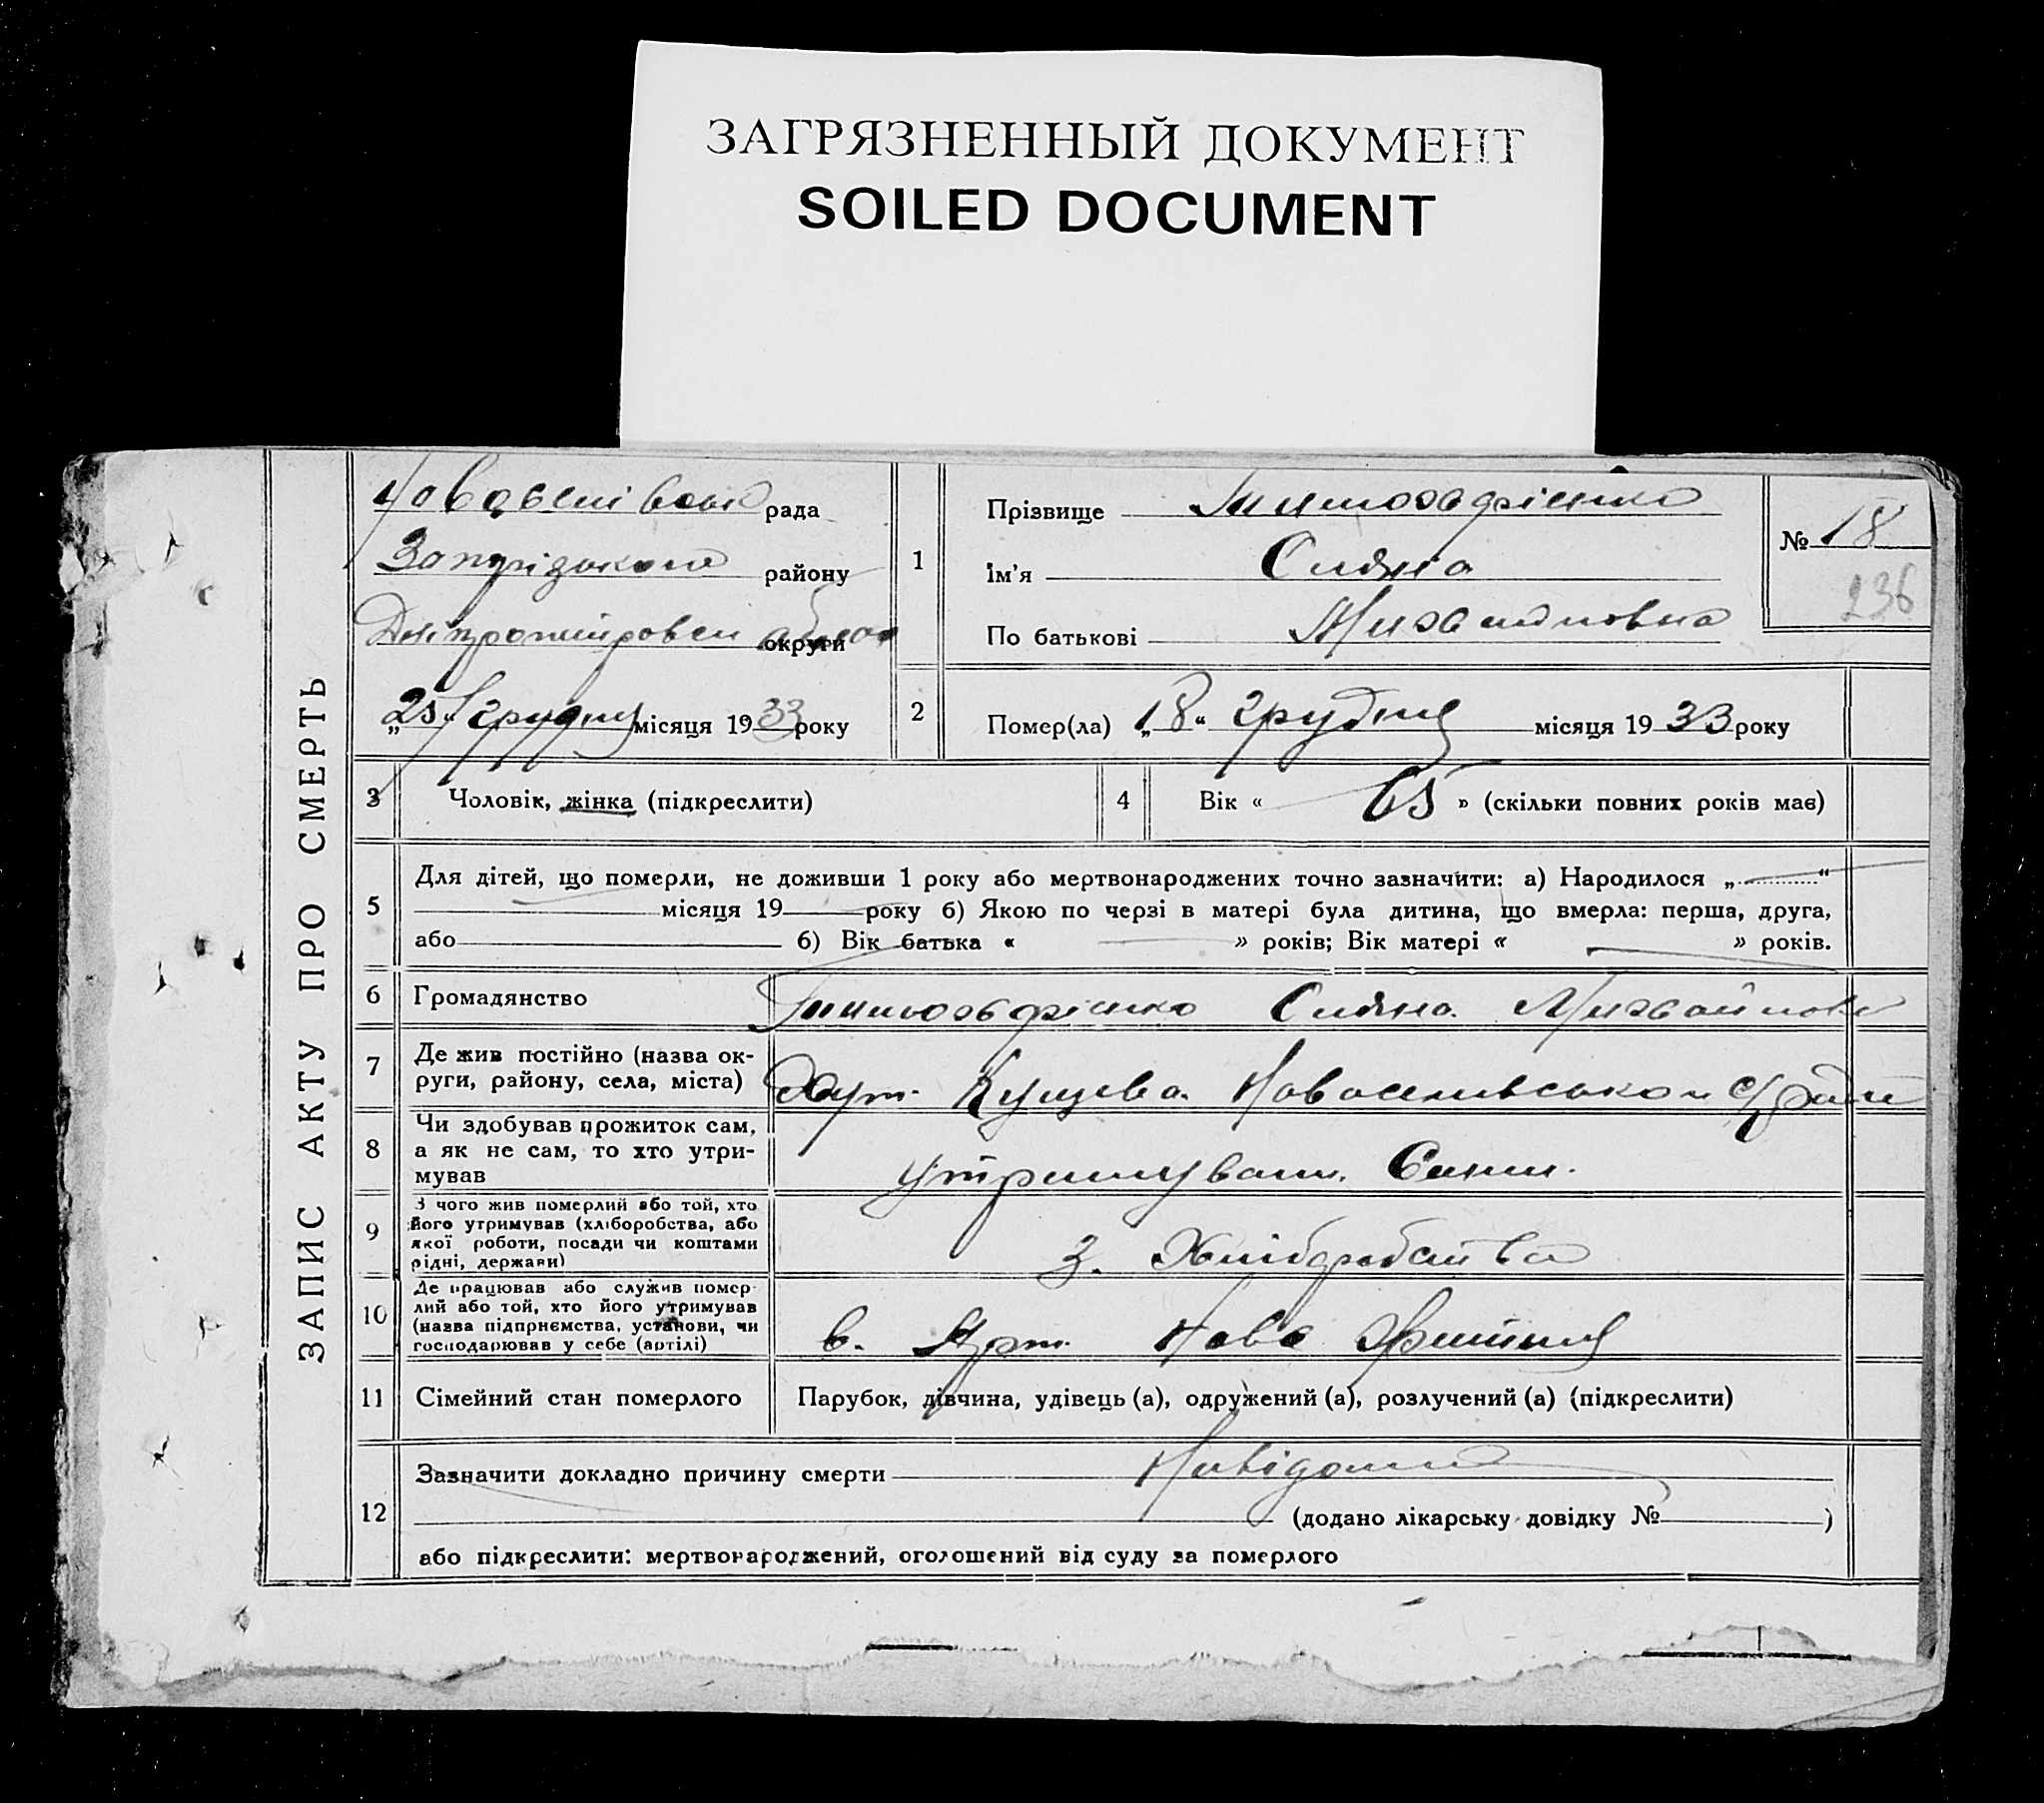 ЗАГРЯЗНЕННЫЙ ДОКУМЕНТ
SOILED DOCUMENT
ЗАПИС АКТУ ПРО СМЕРТЬ
рада
Запорізького району
округи
„25“ грудня місяця 1933 року
1
Прізвище
Ім’я
По батькові
№ 18
236
2
Помер(ла) „18“ грудня місяця 1933 року
3
Чоловік, жінка (підкреслити)
4
Вік « 65 » (скільки повних років має)
5
Для дітей, що померли, не доживши 1 року або мертвонароджених точно зазначити: а) Народилося „ “
місяця 19 року б) Якою по черзі в матері була дитина, що вмерла: перша, друга,
або б) Вік батька « » років; Вік матері « » років.
6
Громадянство
7
Де жив постійно (назва ок-
руги, району, села, міста)
Хут. Кущева
8
Чи здобував прожиток сам,
а як не сам, то хто утри-
мував
9
З чого жив померлий або той, хто
його утримував (хліборобства, або
якої роботи, посади чи коштами
рідні, держави)
З. Хліборобства
10
Де працював або служив помер-
лий або той, хто його утримував
(назва підприємства, установи, чи
господарював у себе (артілі)
в. Арт. Нова
11
Сімейний стан померлого
Парубок, дівчина, удівець (а), одружений (а), розлучений (а) (підкреслити)
12
Зазначити докладно причину смерти Невідома
(додано лікарську довідку № )
або підкреслити: мертвонароджений, оголошений від суду за померлого